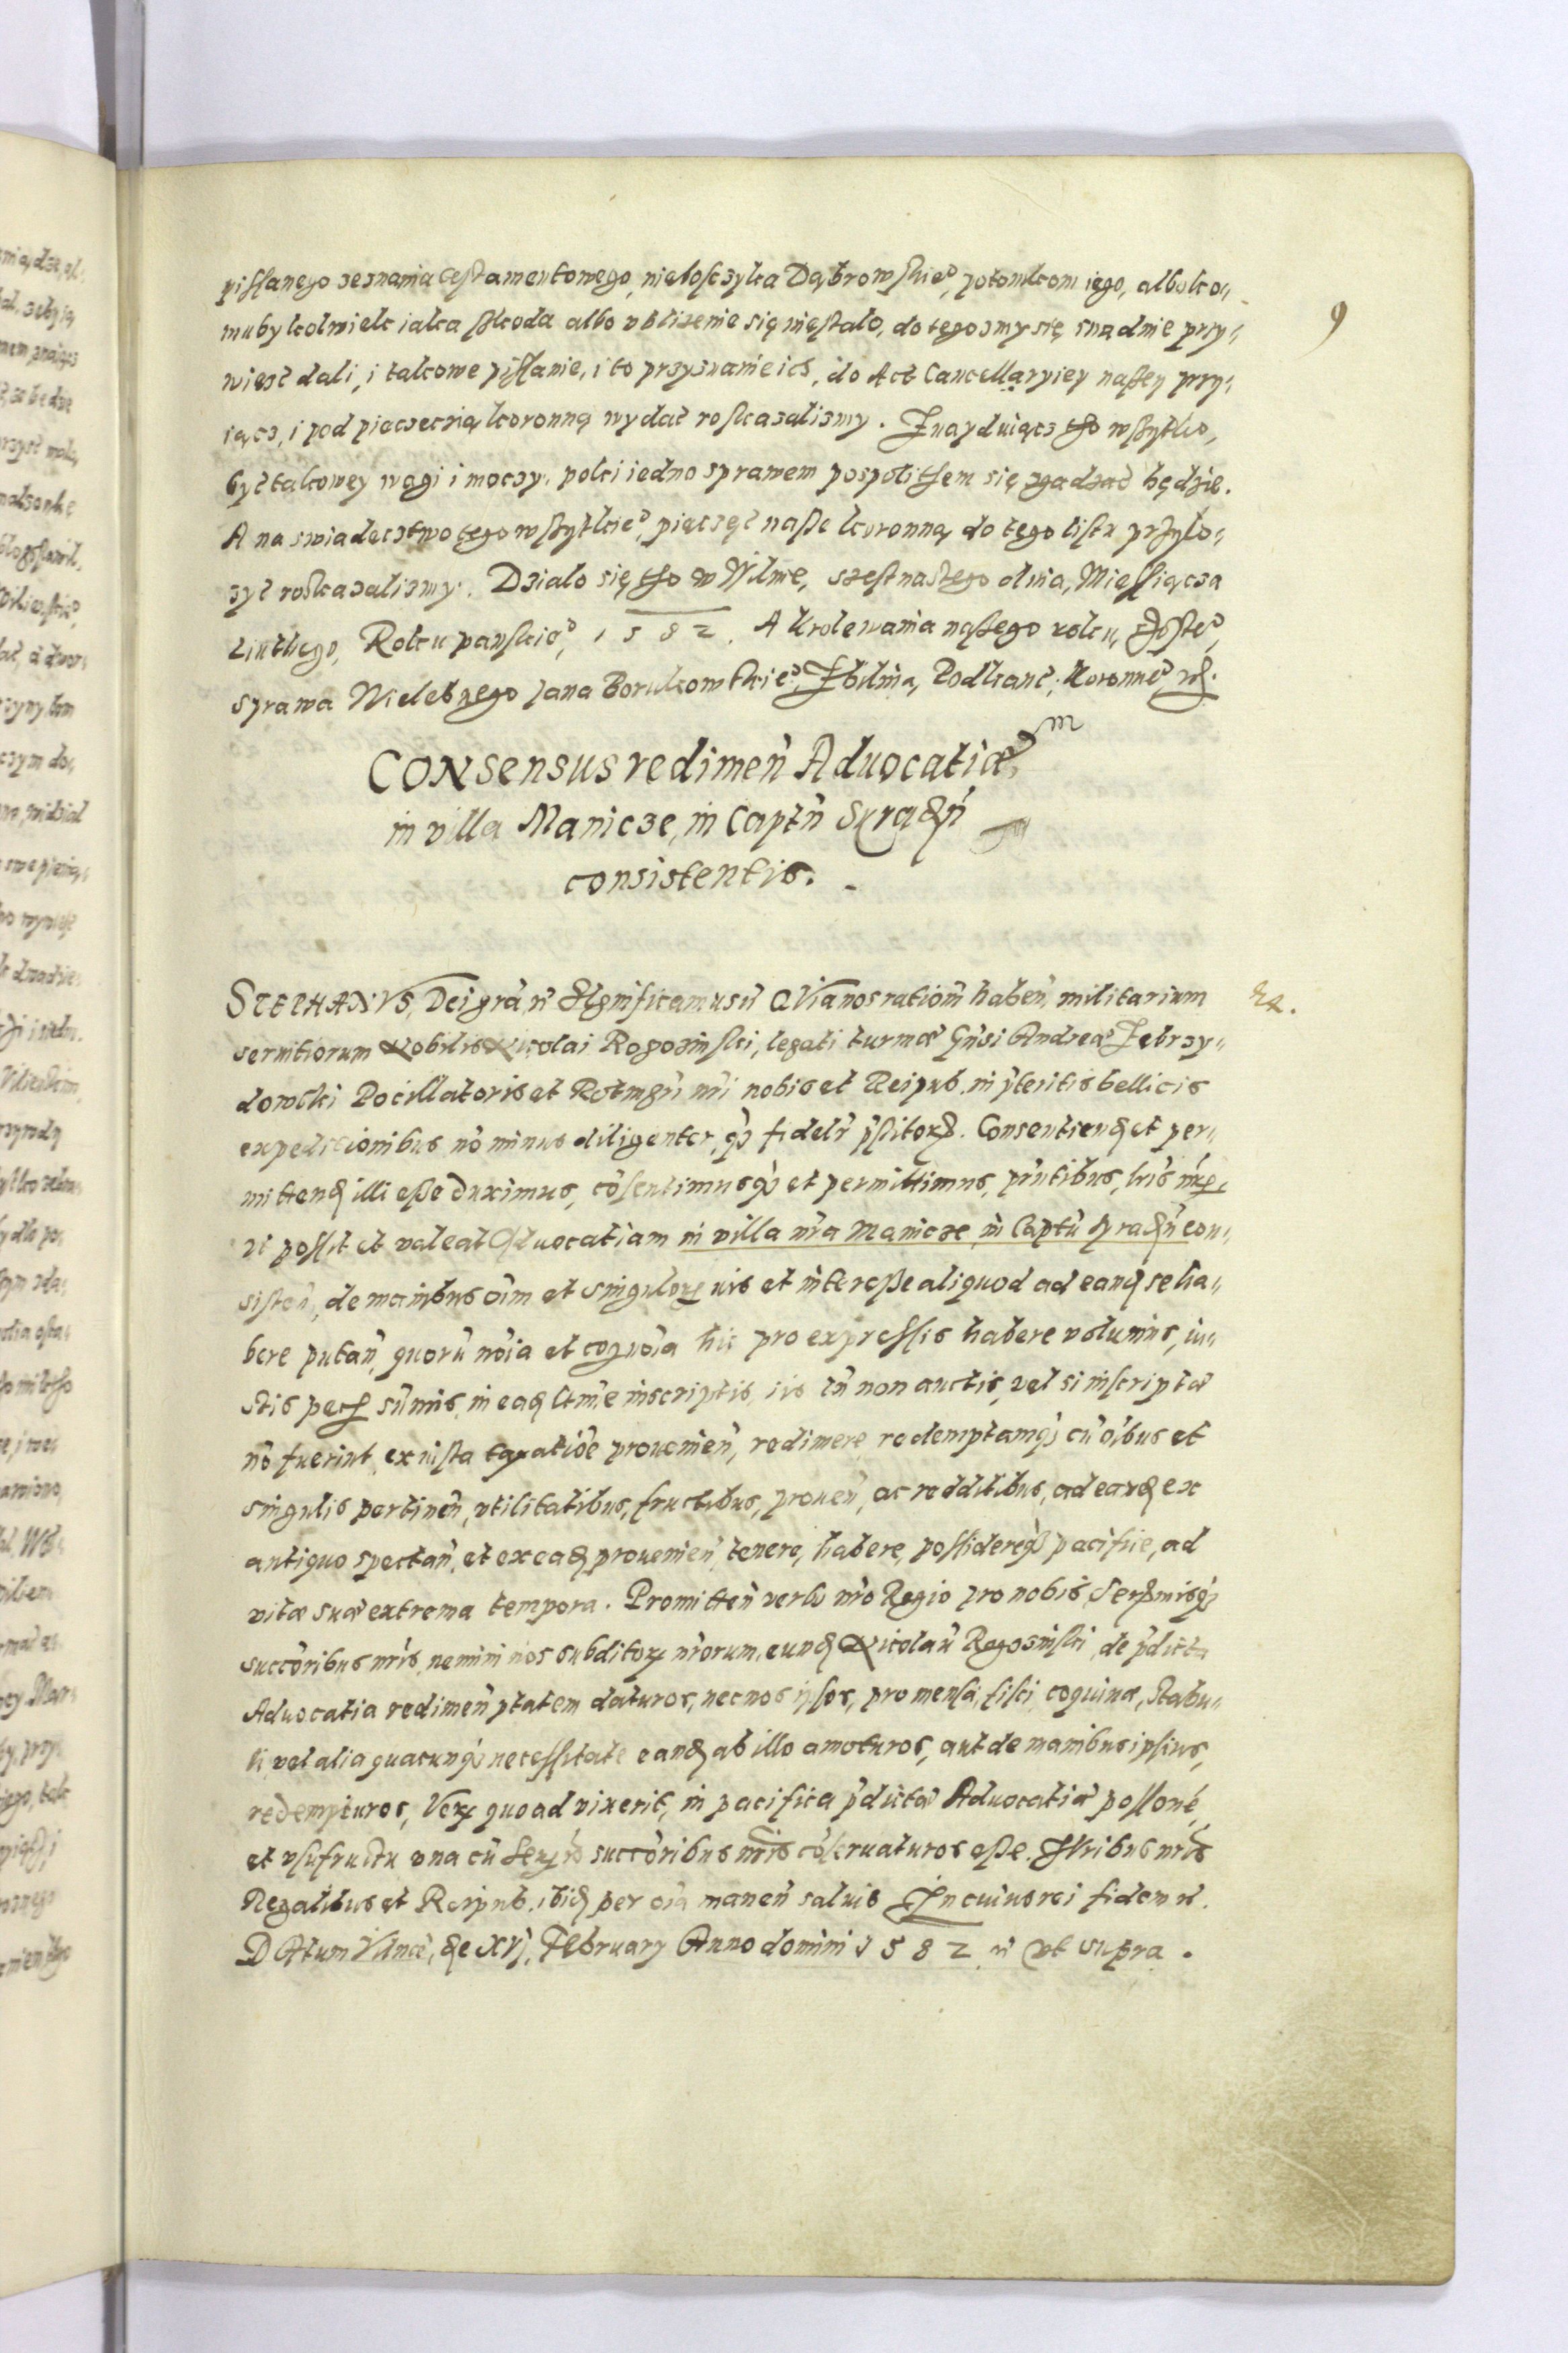 9
pissanego zeznania testamentowego, nieboszczyka Dąbrowskie°, potomkom iego, albo ko„
mubykolwiek iaka szkoda albo ubliżenie się niestało, do tego zmy się snadnie przy„
wieść dali, i takowe pissanie, i to przyznanie ich, do Act Cancellaryiey naszey przy„
iącz, i pod pieczęcią koronną wydać roskazalismy. Znayduiącz tho wszytko,
być takowey wagi i moczy, poki iedno sprawem pospolithem się zgadzać będzie.
A na swiadecztwo tego wszytkie°, pieczęć nasze koronną do tego listu przyło„
zyć roskazalismy. Dzialo się tho w Wilnie, szestnastego dnia, Miessiącza
Liuthego, Roku panskie°, 1582. A krolewania naszego roku, Szoste°,
sprawa Wielebnego Jana Borukowskie°, Zbilina, Podkanc: Koronne°
Consensus redimen Advocatiam
in villa Manicze, in Captn Syradn
consistentis.
STEPHANVS, Dei gra, Significamus Quia nos rationem haben militarium 24.
servitiorum Nobilis Nicolai Rogozinski, legati turmæ Gnsi Andreæ Zebrzy„
dowski Pocillatoris et Rotmgri nri nobis et Reipub. in pteritis bellicis
expeditionibus nō minus diligenter, q3 fidelr pstitorz. Consentiend et per„
mittend illi esse duximus, cōsentimusq3 et permittimus, pntibus, lris nris,
vt possit et valeat Advocatiam in villa nra Manicze in Captu Syradn con„
sisten, de manibus oīm et singulorz ius et interesse aliquod ad eand se ha„
bere putan, quorū noīa et cognoīa hic pro expressis habere volumus, iu„
stis pecz sūmis, in ead ltme inscriptis, iis tn non auctis, vel si inscriptæ
nō fuerint, ex iusta taxatiōe prouenien, redimere, redemptamq3 cū oībus et
singulis pertinen, vtilitatibus, fructibus, prouen, ac redditibus, ad eand ex
antiquo spectan, et ex ead prouenien, tenere, habere, possidereq3 pacifice, ad
vitæ suæ extrema tempora. Promitten verbo nro Regio pro nobis, Sermisq3
succōribus nris, nemini nos subditorz nrorum, eund Nicolaū Rogozinski, de pdicta
Advocatia redimen ptatem daturos, nec nos ipsos, pro mensa, fisci, coquinæ, stabu„
li, vel alia quacunq3 necessitate eand ab illo amoturos, aut de manibus ipsius,
redempturos, Verz quoad vixerit, in pacifica pdictæ Advocatiæ possone,
et vsufructu vna cū Sermis succōribus nris cōseruaturos esse. Iuribus nris
Regalibus et Reipub. ibid per oīa manen saluis. In cuius rei fidem
DAtum Vilnæ, die XVI, February Anno domini 1582 vt supra.